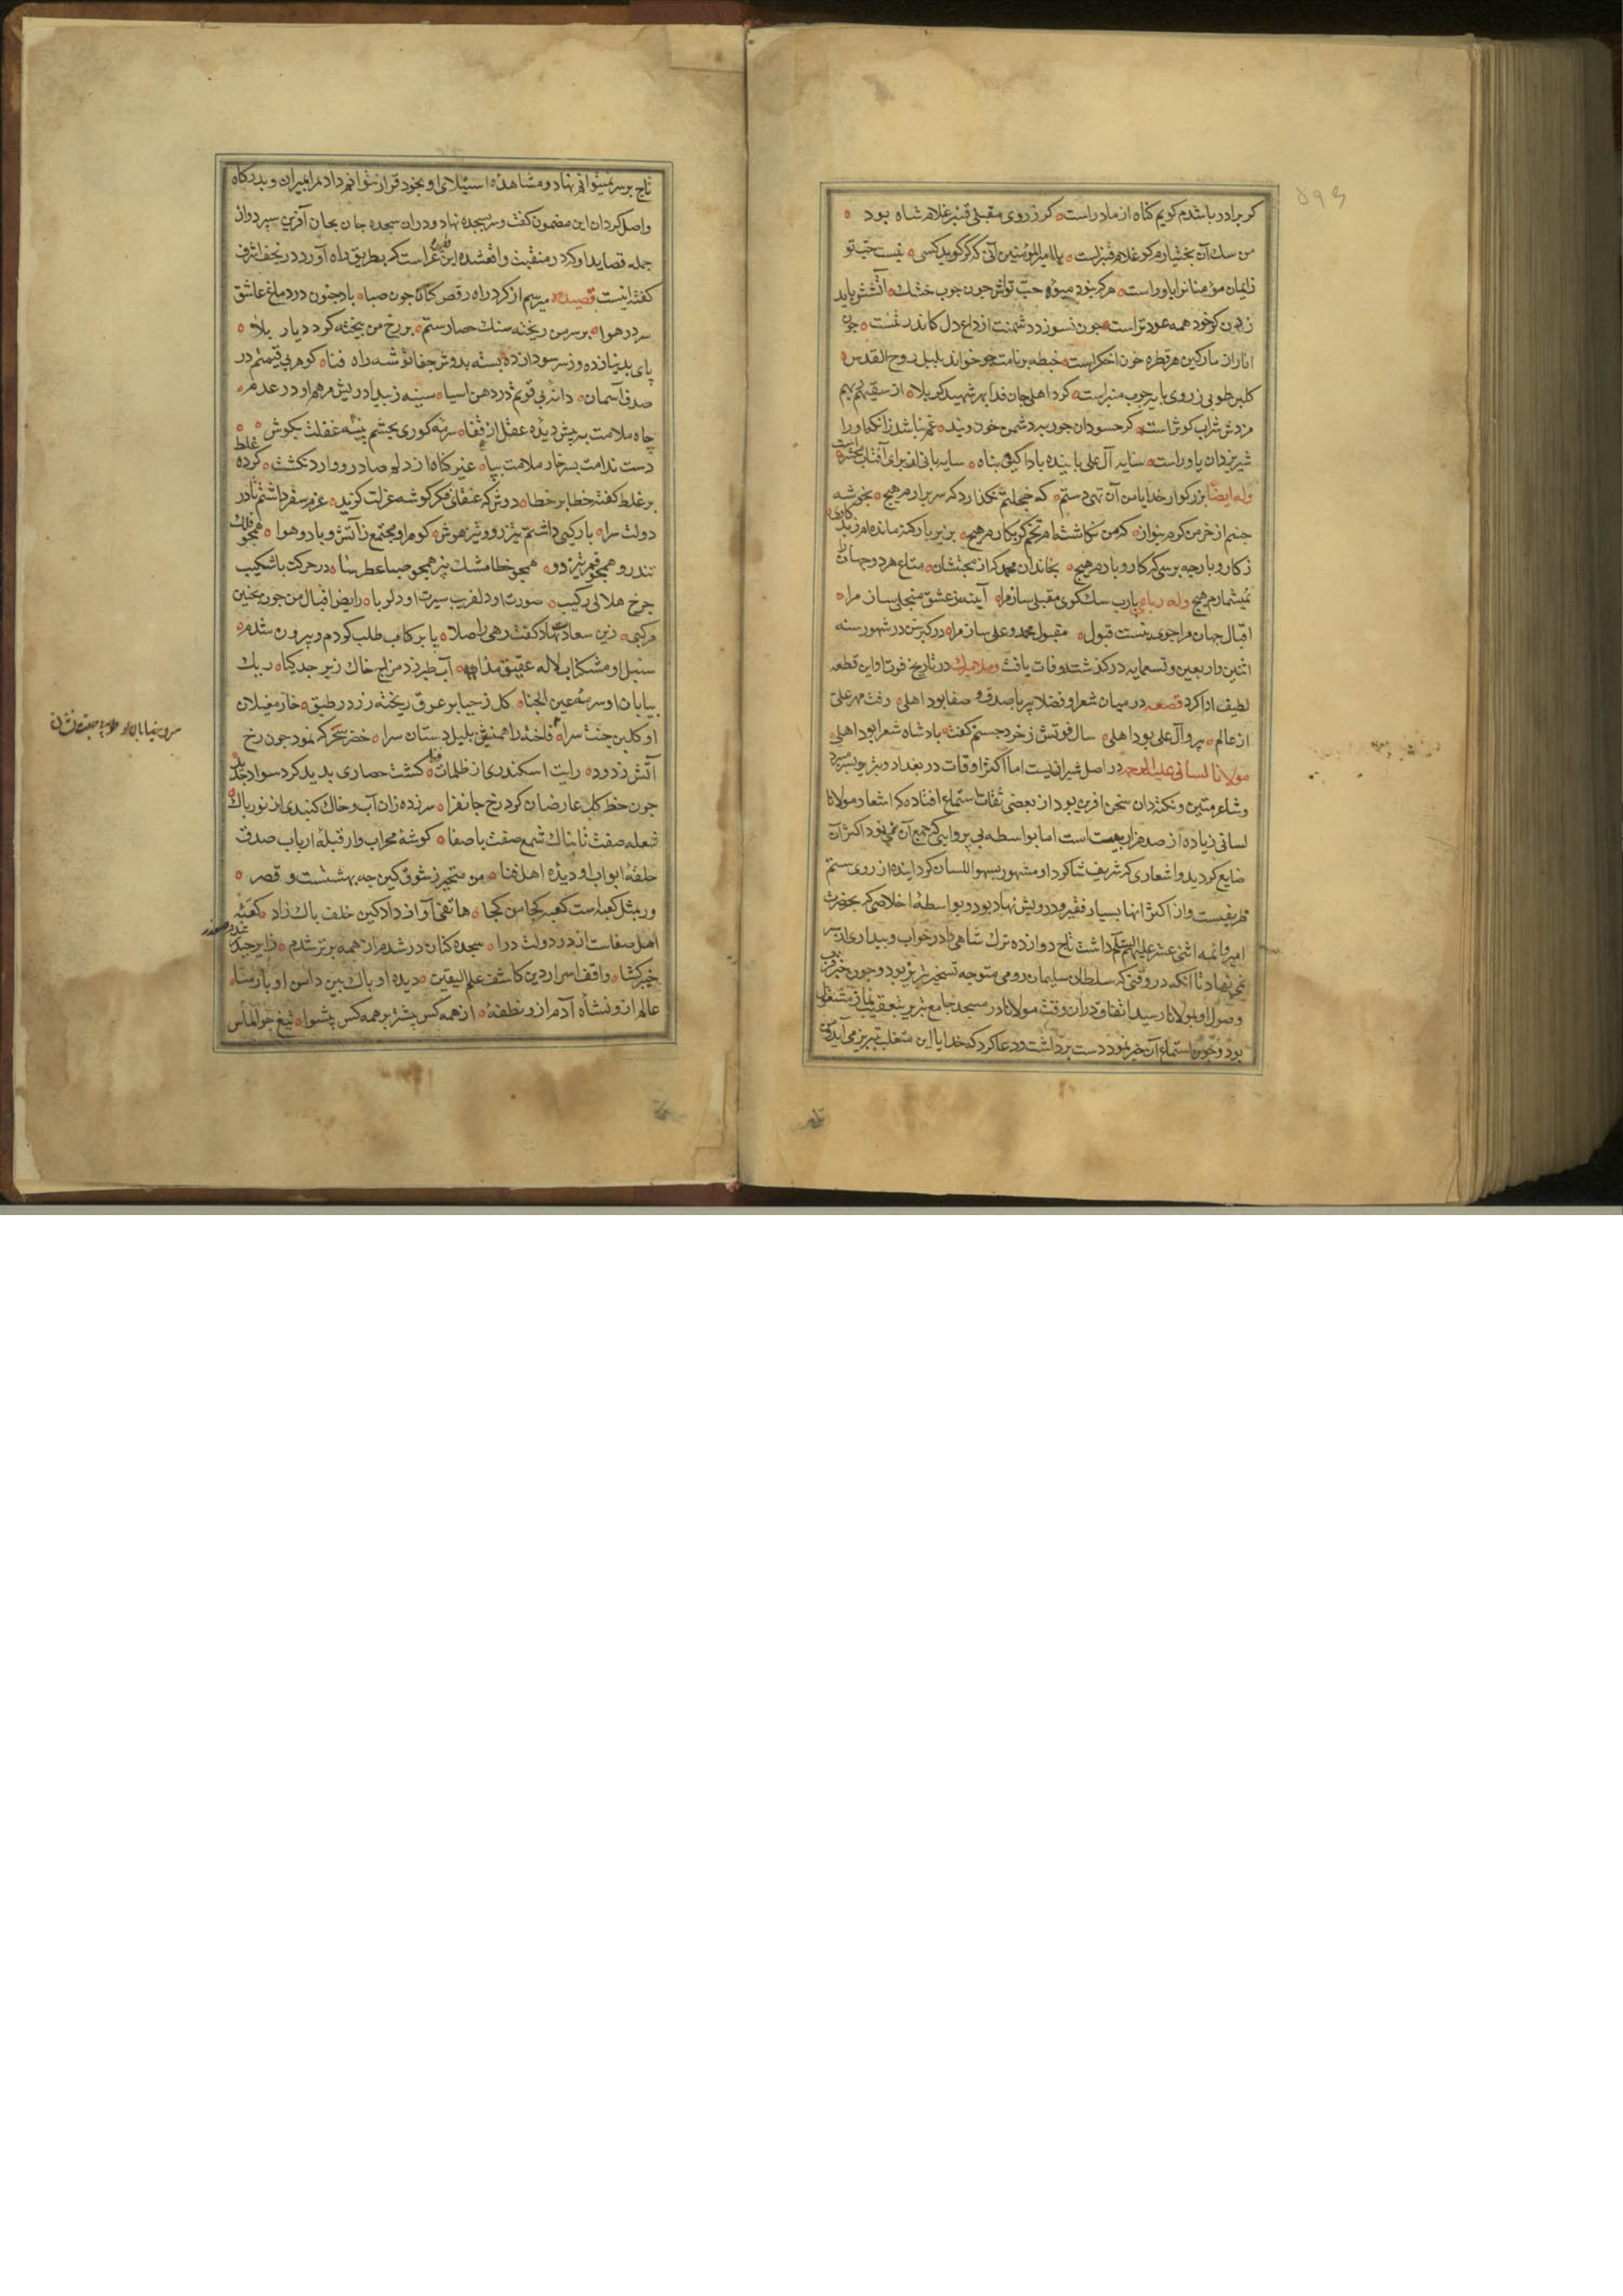 کر برادر باشدم کویم کناه از مادر است کر ز روی مقبلی قنبر غلام شاه بود
من سك آن بختیارم کو غلام قنبر است یا امیرالمؤمنین آنی که کر کوید کسی نیست حب تو
ز ایمان مؤمنانرا باور است هر که بخود میوۀ حب تواش چون چوب خشك آتشش باید
زدن کو خود همه عود تر است چون نسوزد دشمنت از داغ دل کاندر تنست چون
انار از مار کین هر قطره خون اخکر است خطبه بر نامت چو خواند بلبل روح القدس
کلبن طوبی ز روی پایه چوب منبر است کرد اهلی جان فدا بهر شهید کربلا از سقیهم ربهم
مزدش شراب کوثر است کر حسودان جور بر دشمن خود ویند غم نباشد زانکه او را
شیر یزدان یاور است سایه آل علی پاینده بادا کین پناه سایه بانی از برای آفتاب محشر است
وله ایضا بزرکوار خدایا من آن تهی دستم که خجلتم نکذارد که سر برارم هیچ بخوشه
چینم از خرمن کرم بنواز که من نکاشته ام تخم کر بکارم هیچ بزیر بار کنه مانده ام ز بد کاری
ز کار و بار چه پرسی که کار و بارم هیچ بخاندان محمد که از محبتشان متاع هر دو جهان را
نمیشمارم هیچ وله رباعی یارب سك کوی مقبلی ساز مرا آینه ز عشق منجلی ساز مرا
اقبال جهان مرا جوی نیست قبول مقبول محمد و علی ساز مرا در کبر سن در شهور سنه
اثنین و اربعین و تسعمایه درکذشت و وفات یافت و ملا میرك در تاریخ فوت او این قطعه
لطیف ادا کرد قطعه در میان شعرا و فضلا پیر با صدق و صفا بود اهلی رفت مهر علی
از عالم پیرو آل علی بود اهلی سال فوتش ز خرد جستم کفت بادشاه شعرا بود اهلی
مولانا لسانی علیه الرحمه در اصل شیرازیست اما اکثر اوقات در بغداد و تبریز بسر میبرد
و شاعر متین و نکته دان سخن آفرین بود از بعضی ثقات استماع افتاده که اشعار مولانا
لسانی زیاده از صد هزار بیت است اما بواسطه بی پروایی که جمع آن نمی نمود اکثر آن
ضایع کردید و اشعاری که شریف شاکرد او مشهور بسهو اللسان کردانیده از روی ستم
ظریفیست و از اکثر انها بسیار فقیر و درویش نهاد بود و بواسطۀ اخلاصی که بحضرت
امیر و ائمه اثنی عشر علیهم السلم داشت تاج دوازده ترك شاهی را در خواب و بیداری از سر
نمی نهاد تا انکه در وقتی که سلطان سلیمان رومی متوجه تسخیر تبریز بود و چون خبر قرب
وصول او بمولانا رسید اتفاقا در آن وقت مولانا در مسجد جامع تبریز بتعقیب نماز مشغول
بود و چون استماع آن خبر نمود دست برداشت و دعا کرد که خدایا این متغلب بتبریز می آید و من
تاج بر سر نمیتوانم نهاد و مشاهدۀ استیلای او بخود قرار نتوانم داد مرا بمیران و بدرکاه
واصل کردان این مضمون کفت و سر بسجده نهاد و دران سجده جان بجان آفرین سپرد و از
جمله قصاید او که در منقبت واقع شده این قصیده غراست که بطریق راه آورد در نجف اشرف
کفته اینست قصیده میرسم از کرد راه رقص کنان چون صبا باد جنون در دماغ عاشق
سر در هوا بر سر من ریخته سنك حصار ستم بر رخ من بیخته کرد دیار بلا
پای بدینا زده وز سر سودا زده بسته بدوش جفا توشه راه فنا کوهر بی قیمتم در
صدف آسمان دانه بی قوتم در دهن اسیا سینه ز بیداد ریش مرهم او در عدم
چاه ملامت به پیش دیده عقل از قفا سرمه کوری بچشم پنبه غفلت بکوش
دست ندامت بسر خار ملامت بپا غیر کناه از دلم صادر و وارد نکشت کرده غلط
بر غلط کفته خطا بر خطا دوش که عنقای فکر کوشه عزلت کزید عزم سفر داشتم تا در
دولت سرا بارکیی داشتم تیز رو و تیز هوش کوهر او مجتمع ز آتش و باد و هوا همچو فلك
تند رو همچو قمر تیز دو همچو خطا مشك بیز همچو صبا عطر سا در حرکت باشکیب
چرخ هلالی رکیب صورت او دلفریب سیرت او دلربا رایض اقبال من چون بچنین
مرکبی زین سعادت نهاد کفت رهی را صلا پا برکاب طلب کردم و بیرون شدم
سنبل او مشکناب لاله عقیق مذاب آب طبرزد مزاج خاك زبرجد کیا ریك
بیابان او سرمۀ عین الجنا کل ز حیا بر عرق ریخته زر در طبق خار مغیلان
او کلبن جنت سرا فاخته را همنفس بلبل دستان سرا خضر سحر که نمود چون رخ
آتش ز دود رایت اسکندری از ظلمات فنا کشت حصاری بدید کرد سواد جدید
چون خط کل عارضان کرد رخ جانفزا سر زده زان آب و خاك کنبدی از نور پاك
شعله صفت تابناك شمع صفت با صفا کوشۀ محراب وار قبلۀ ارباب صدق
حلقۀ ابواب او دیدۀ اهل فنا من متحیر ز شوق کین چه بهشتست و قصر
ور بمثل کعبه است کعبه کجا من کجا هاتفی آواز داد کین خلف پاك زاد کعبۀ
اهل صفاست اندر دولت درا سجده کنان در شدم از همه برتر شدم زایر حیدر شدم صفدر
خیبر کشا واقف اسرار دین کاشف علم الیقین دیده او پاك بین دامن او پارسا
عالم از و نشأه آدم از و نطفۀ از همه کس پیشتر بر همه کس پیشوا تیغ چو الماس